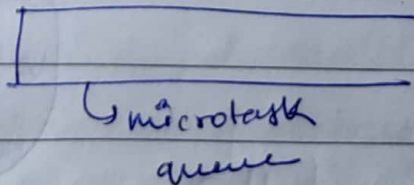 microtask
queue